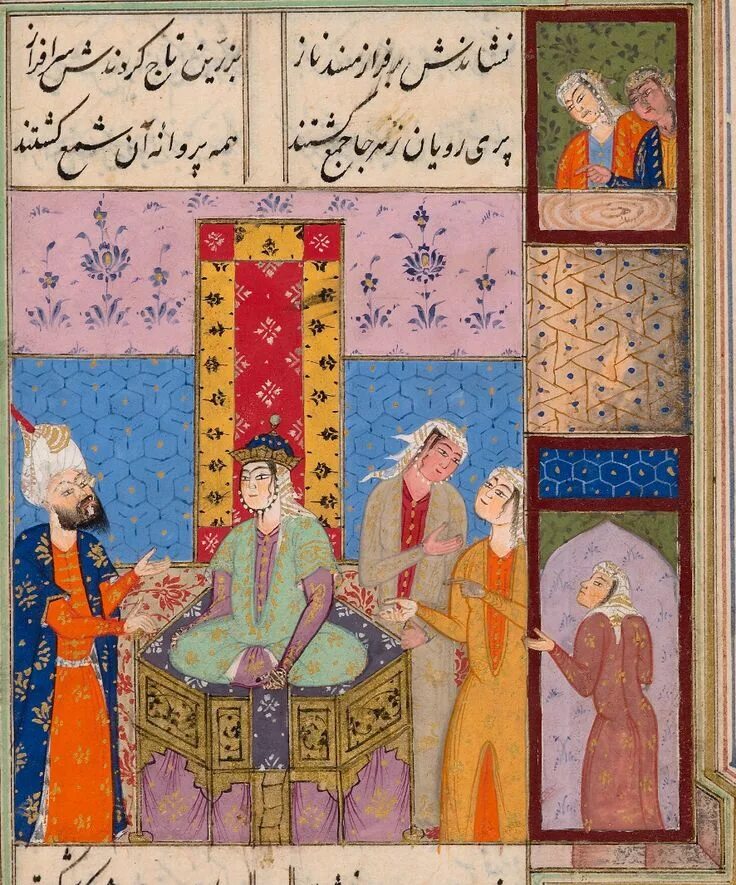 نشاندنش بر فراز مسند ناز بزرّین تاج کردندش سرافراز
پری رویان ز هر جا جمع گشتند همه پروانهٔ آن شمع گشتند